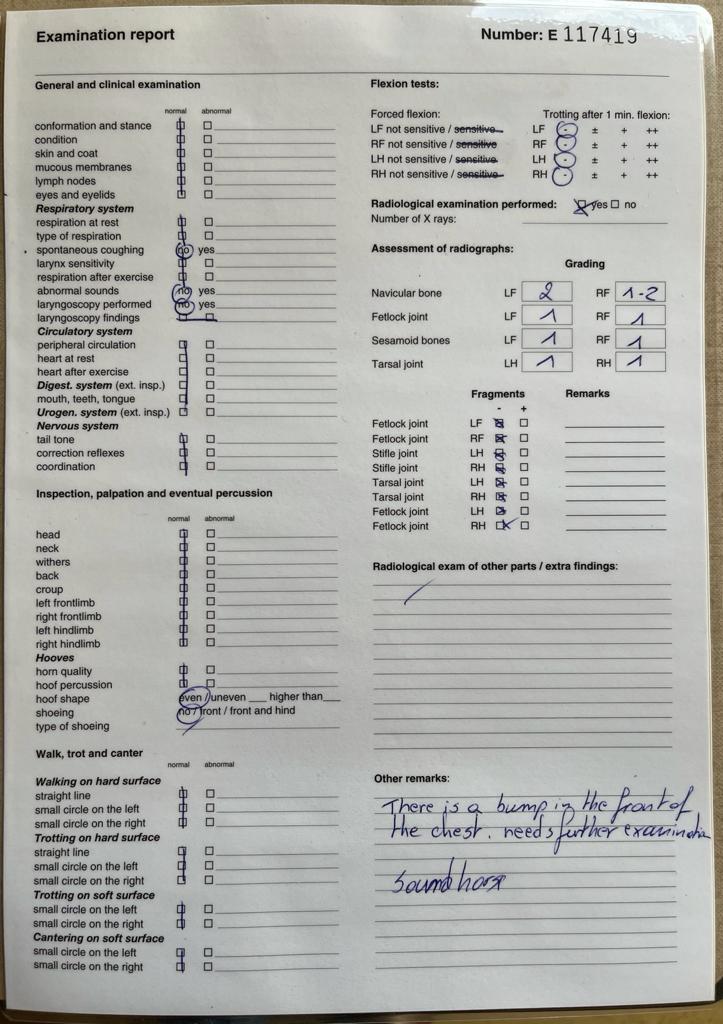 Examination report
Number: E 117419
General and clinical examination
normal abnormal
conformation and stance
condition
skin and coat
mucous membranes
lymph nodes
eyes and eyelids
Respiratory system
respiration at rest
type of respiration
spontaneous coughing no yes
larynx sensitivity
respiration after exercise
abnormal sounds no yes
laryngoscopy performed no yes
laryngoscopy findings
Circulatory system
peripheral circulation
heart at rest
heart after exercise
Digest. system (ext. insp.)
mouth, teeth, tongue
Urogen. system (ext. insp.)
Nervous system
tail tone
correction reflexes
coordination
Inspection, palpation and eventual percussion
normal abnormal
head
neck
withers
back
croup
left frontlimb
right frontlimb
left hindlimb
right hindlimb
Hooves
horn quality
hoof percussion
hoof shape even / uneven ___ higher than___
shoeing no / front / front and hind
type of shoeing
Walk, trot and canter
normal abnormal
Walking on hard surface
straight line
small circle on the left
small circle on the right
Trotting on hard surface
straight line
small circle on the left
small circle on the right
Trotting on soft surface
small circle on the left
small circle on the right
Cantering on soft surface
small circle on the left
small circle on the right
Flexion tests:
Forced flexion: Trotting after 1 min. flexion:
LF not sensitive / sensitive LF - ± + ++
RF not sensitive / sensitive RF - ± + ++
LH not sensitive / sensitive LH - ± + ++
RH not sensitive / sensitive RH - ± + ++
Radiological examination performed: yes no
Number of X rays:
Assessment of radiographs:
Grading
Navicular bone LF 2 RF 1-2
Fetlock joint LF 1 RF 1
Sesamoid bones LF 1 RF 1
Tarsal joint LH 1 RH 1
Fragments Remarks
- +
Fetlock joint LF
Fetlock joint RF
Stifle joint LH
Stifle joint RH
Tarsal joint LH
Tarsal joint RH
Fetlock joint LH
Fetlock joint RH
Radiological exam of other parts / extra findings:
Other remarks:
There is a bump in the front of
the chest. needs further examination
Sound horse